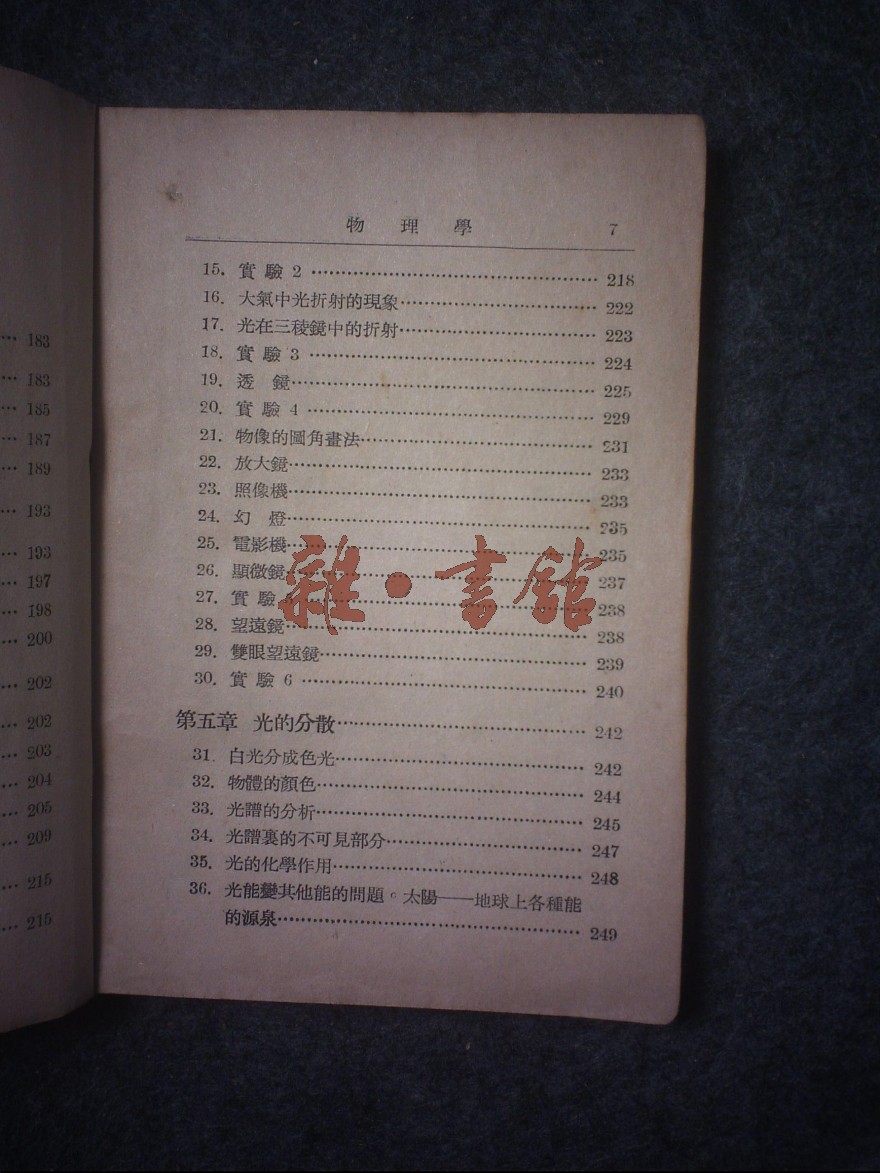 183
183
185
187
189
193
193
197
198
200
202
202
203
204
205
209
215
215
物理學 7
15. 實驗2 218
16. 大氣中光折射的現象 222
17. 光在三稜鏡中的折射 223
18. 實驗3 224
19. 透鏡 225
20. 實驗4 229
21. 物像的圖角畫法 231
22. 放大鏡 233
23. 照像機 233
24. 幻燈 235
25. 電影機 235
26. 顯微鏡 237
27. 實驗 238
28. 望遠鏡 238
29. 雙眼望遠鏡 239
30. 實驗6 240
第五章 光的分散 242
31. 白光分成色光 242
32. 物體的顏色 244
33. 光譜的分析 245
34. 光譜裏的不可見部分 247
35. 光的化學作用 248
36. 光能變其他能的問題。太陽——地球上各種能
的源泉 249
雜·書館